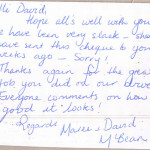 Hello David,
Hope all's well with you.
have been very slack - should
have sent this cheque to you
weeks ago - Sorry!
Thanks again for the great
job you did on our drive.
Everyone comments on how
good it looks!
Regards Maree & David
McBean